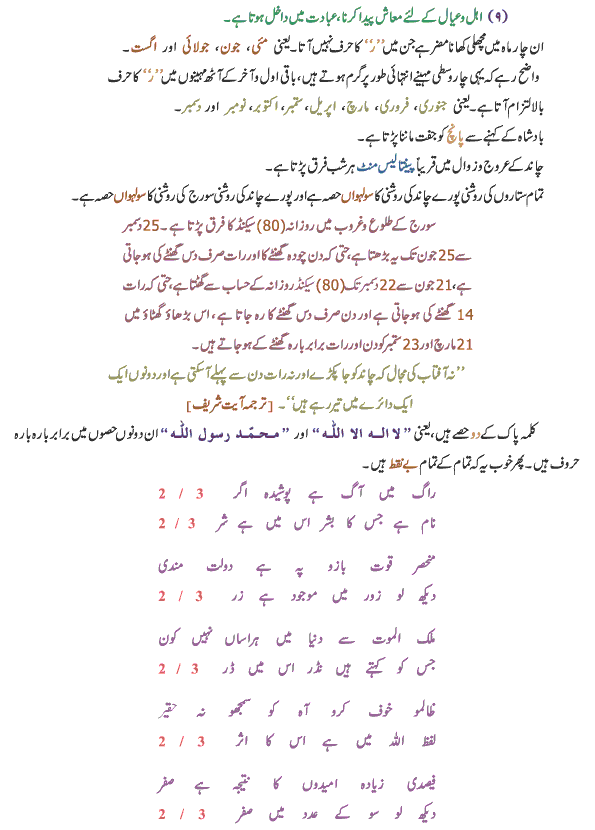 (۹) اہل و عیال کے لئے معاش پیدا کرنا، عبادت میں داخل ہوتا ہے۔
ان چار ماہ میں مچھلی کھانا مضر ہے جن میں ’’ر‘‘ کا حرف نہیں آتا۔ یعنی مئی، جون، جولائی اور اگست۔
واضح رہے کہ یہی چار وسطی مہینے انتہائی طور پر گرم ہوتے ہیں، باقی اول و آخر کے آٹھ مہینوں میں ’’ر‘‘ کا حرف
بالالتزام آتا ہے۔ یعنی جنوری، فروری، مارچ، اپریل، ستمبر، اکتوبر، نومبر اور دسمبر۔
بادشاہ کے کہنے سے پانچ کو جفت ماننا پڑتا ہے۔
چاند کے عروج و زوال میں قریباً پینتالیس منٹ ہر شب فرق پڑتا ہے۔
تمام ستاروں کی روشنی پورے چاند کی روشنی کا سولہواں حصہ ہے اور پورے چاند کی روشنی سورج کی روشنی کا سولہواں حصہ ہے۔
سورج کے طلوع و غروب میں روزانہ (80) سیکنڈ کا فرق پڑتا ہے۔ 25 دسمبر
سے 25 جون تک یہ بڑھتا ہے، حتیٰ کہ دن چودہ گھنٹے کا اور رات صرف دس گھنٹے کی ہو جاتی
ہے، 21 جون سے 22 دسمبر تک (80) سیکنڈ روزانہ کے حساب سے گھٹتا ہے، حتیٰ کہ رات
14 گھنٹے کی ہو جاتی ہے اور دن صرف دس گھنٹے کا رہ جاتا ہے، اس بڑھاؤ گھٹاؤ میں
21 مارچ اور 23 ستمبر کو دن اور رات برابر بارہ گھنٹے کے ہو جاتے ہیں۔
’’نہ آفتاب کی مجال کہ چاند کو جا پکڑے اور نہ رات دن سے پہلے آسکتی ہے اور دونوں ایک
ایک دائرے میں تیر رہے ہیں‘‘۔ [ترجمہ آیت شریف]
کلمہ پاک کے دو حصے ہیں، یعنی ”لا الہ الا اللہ“ اور ”محمد رسول اللہ“ ان دونوں حصوں میں برابر بارہ بارہ
حروف ہیں۔ پھر خوب یہ کہ تمام کے تمام بے نقط ہیں۔
راگ میں آگ ہے پوشیدہ اگر 3 / 2
نام ہے جس کا بشر اس میں ہے شر 3 / 2
منحصر قوت بازو پہ ہے دولت مندی
دیکھ لو زور میں موجود ہے زر 3 / 2
ملک الموت سے دنیا میں ہراساں نہیں کون
جس کو کہتے ہیں نڈر اس میں ڈر 3 / 2
ظالمو خوف کرو آہ کو سمجھو نہ حقیر
لفظ اللہ میں ہے اس کا اثر 3 / 2
فیصدی زیادہ امیدوں کا نتیجہ ہے صفر
دیکھ لو سو کے عدد میں صفر 3 / 2